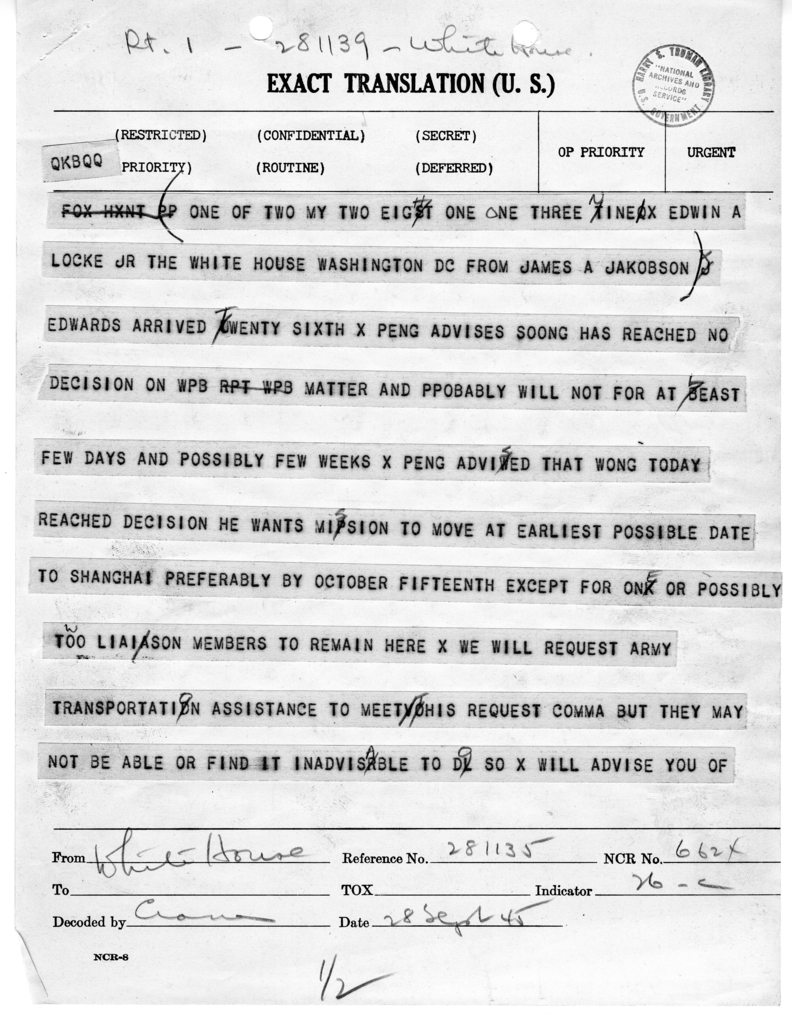 Pt. 1 - 281139 - White House.
EXACT TRANSLATION (U. S.)
HARRY S. TRUMAN LIBRARY
"NATIONAL
ARCHIVES AND
RECORDS
SERVICE"
U.S. GOVERNMENT
(RESTRICTED) (CONFIDENTIAL) (SECRET)
OP PRIORITY URGENT
QKBQQ PRIORITY) (ROUTINE) (DEFERRED)
FOX HXNT PP ONE OF TWO MY TWO EIGHT ONE ONE THREE NINE X EDWIN A
LOCKE JR THE WHITE HOUSE WASHINGTON DC FROM JAMES A JAKOBSON
EDWARDS ARRIVED TWENTY SIXTH X PENG ADVISES SOONG HAS REACHED NO
DECISION ON WPB RPT WPB MATTER AND PPOBABLY WILL NOT FOR AT LEAST
FEW DAYS AND POSSIBLY FEW WEEKS X PENG ADVISED THAT WONG TODAY
REACHED DECISION HE WANTS MISSION TO MOVE AT EARLIEST POSSIBLE DATE
TO SHANGHAI PREFERABLY BY OCTOBER FIFTEENTH EXCEPT FOR ONE OR POSSIBLY
TWO LIAISON MEMBERS TO REMAIN HERE X WE WILL REQUEST ARMY
TRANSPORTATION ASSISTANCE TO MEET THIS REQUEST COMMA BUT THEY MAY
NOT BE ABLE OR FIND IT INADVISABLE TO DO SO X WILL ADVISE YOU OF
From White House Reference No. 281135 NCR No. 662X
To TOX Indicator 26-C
Decoded by Date 28 Sept 45
NCR-8
1/2